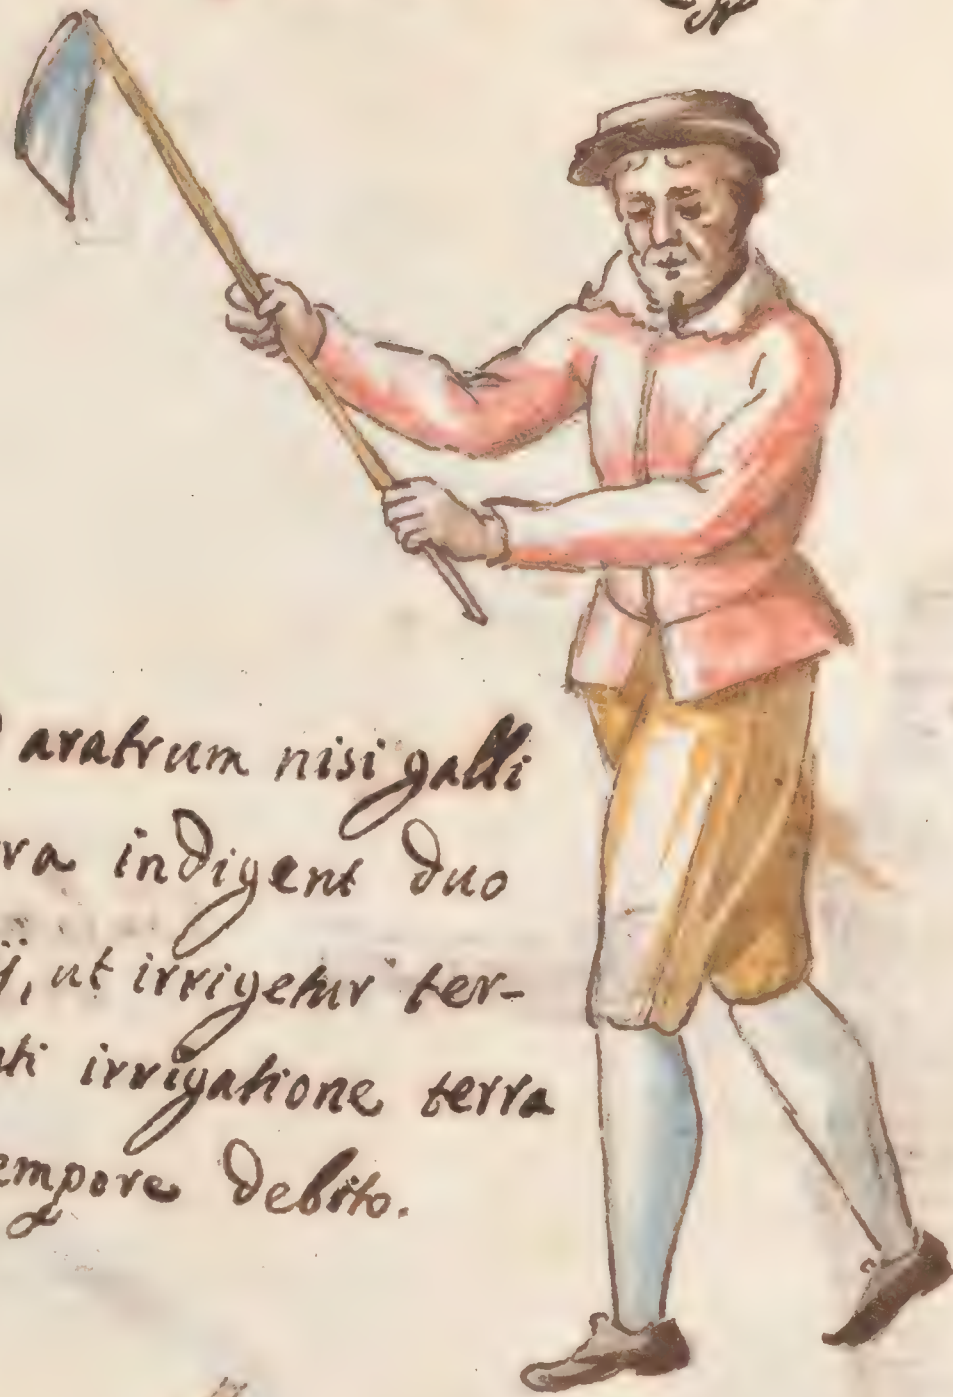 aratrum nisi galli
indigent duo
ut irrigetur ter-
irrigatione terra
tempore debito.